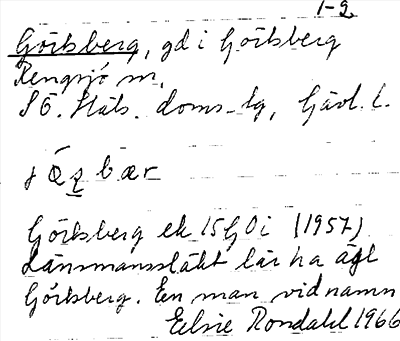 1-2
Görtsberg, gd i Görtsberg
Rengsjö sn,
SÖ. Häls. doms-lg, Gävl. l.
Görtsberg ek 15 GOi (1957)
Länsmanssläkt lär ha ägt
Görtsberg. En man vid namn
Elsie Rondahl 1966